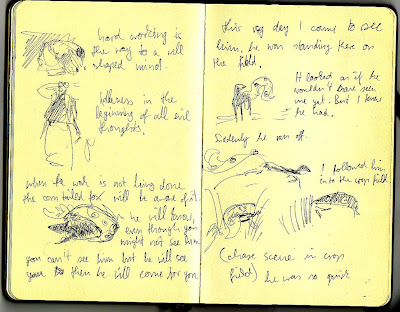 hard working is
the way to a well
shaped mind.
Idleness is the
beginning of all evil
thoughts.
when the work is not being done
the corn tailed fox will be aware of it.
he will know,
even though you
might not see him
you can't see him but he will see
you then he will come for you
this very day I came to see
him. he was standing there on
the field.
It looked as if he
wouldn't have seen
me yet. But I knew
he had.
Sudenly he ran off.
I followed him
into the crop field
(chase scene in crop
field) he was so quick